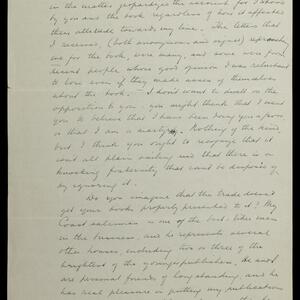 in the matter jeopardize the account for I stood
by you and the book regardless of how it affected
their attitude towards my line. The letters that
I received, (both anonymous and signed)
one for the book, were many, and some were from
decent people whose good opinion I was reluctant
to lose even if they made asses of themselves
about the book. I don't want to dwell on the
opposition to you. You might think that I want
you to believe that I have been doing you a favor,
or that I am a martyr. Nothing of the kind
but I think you ought to recognize that it
isn't all plain sailing and that there is a
knocking fraternity that cannot be disposed of
by ignoring it.
Do you imagine that the trade doesn't
get your books properly presented to it? My
Coast salesman is one of the best liked men
in the business, and he represents several
other houses, including two or three of the
brightest of the younger publishers. He and I
are personal friends of long standing, and he
has real pleasure in putting my publications